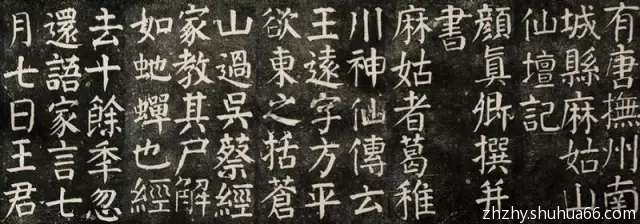 有唐撫州南
城縣麻姑山
仙壇記
顏眞卿撰并
書
麻姑者葛稚
川神仙傳云
王遠字方平
欲東之括蒼
山過吳蔡經
家教其尸解
如虵蟬也經
去十餘秊忽
還語家言七
月七日王君
zhzhy.shuhua66.com